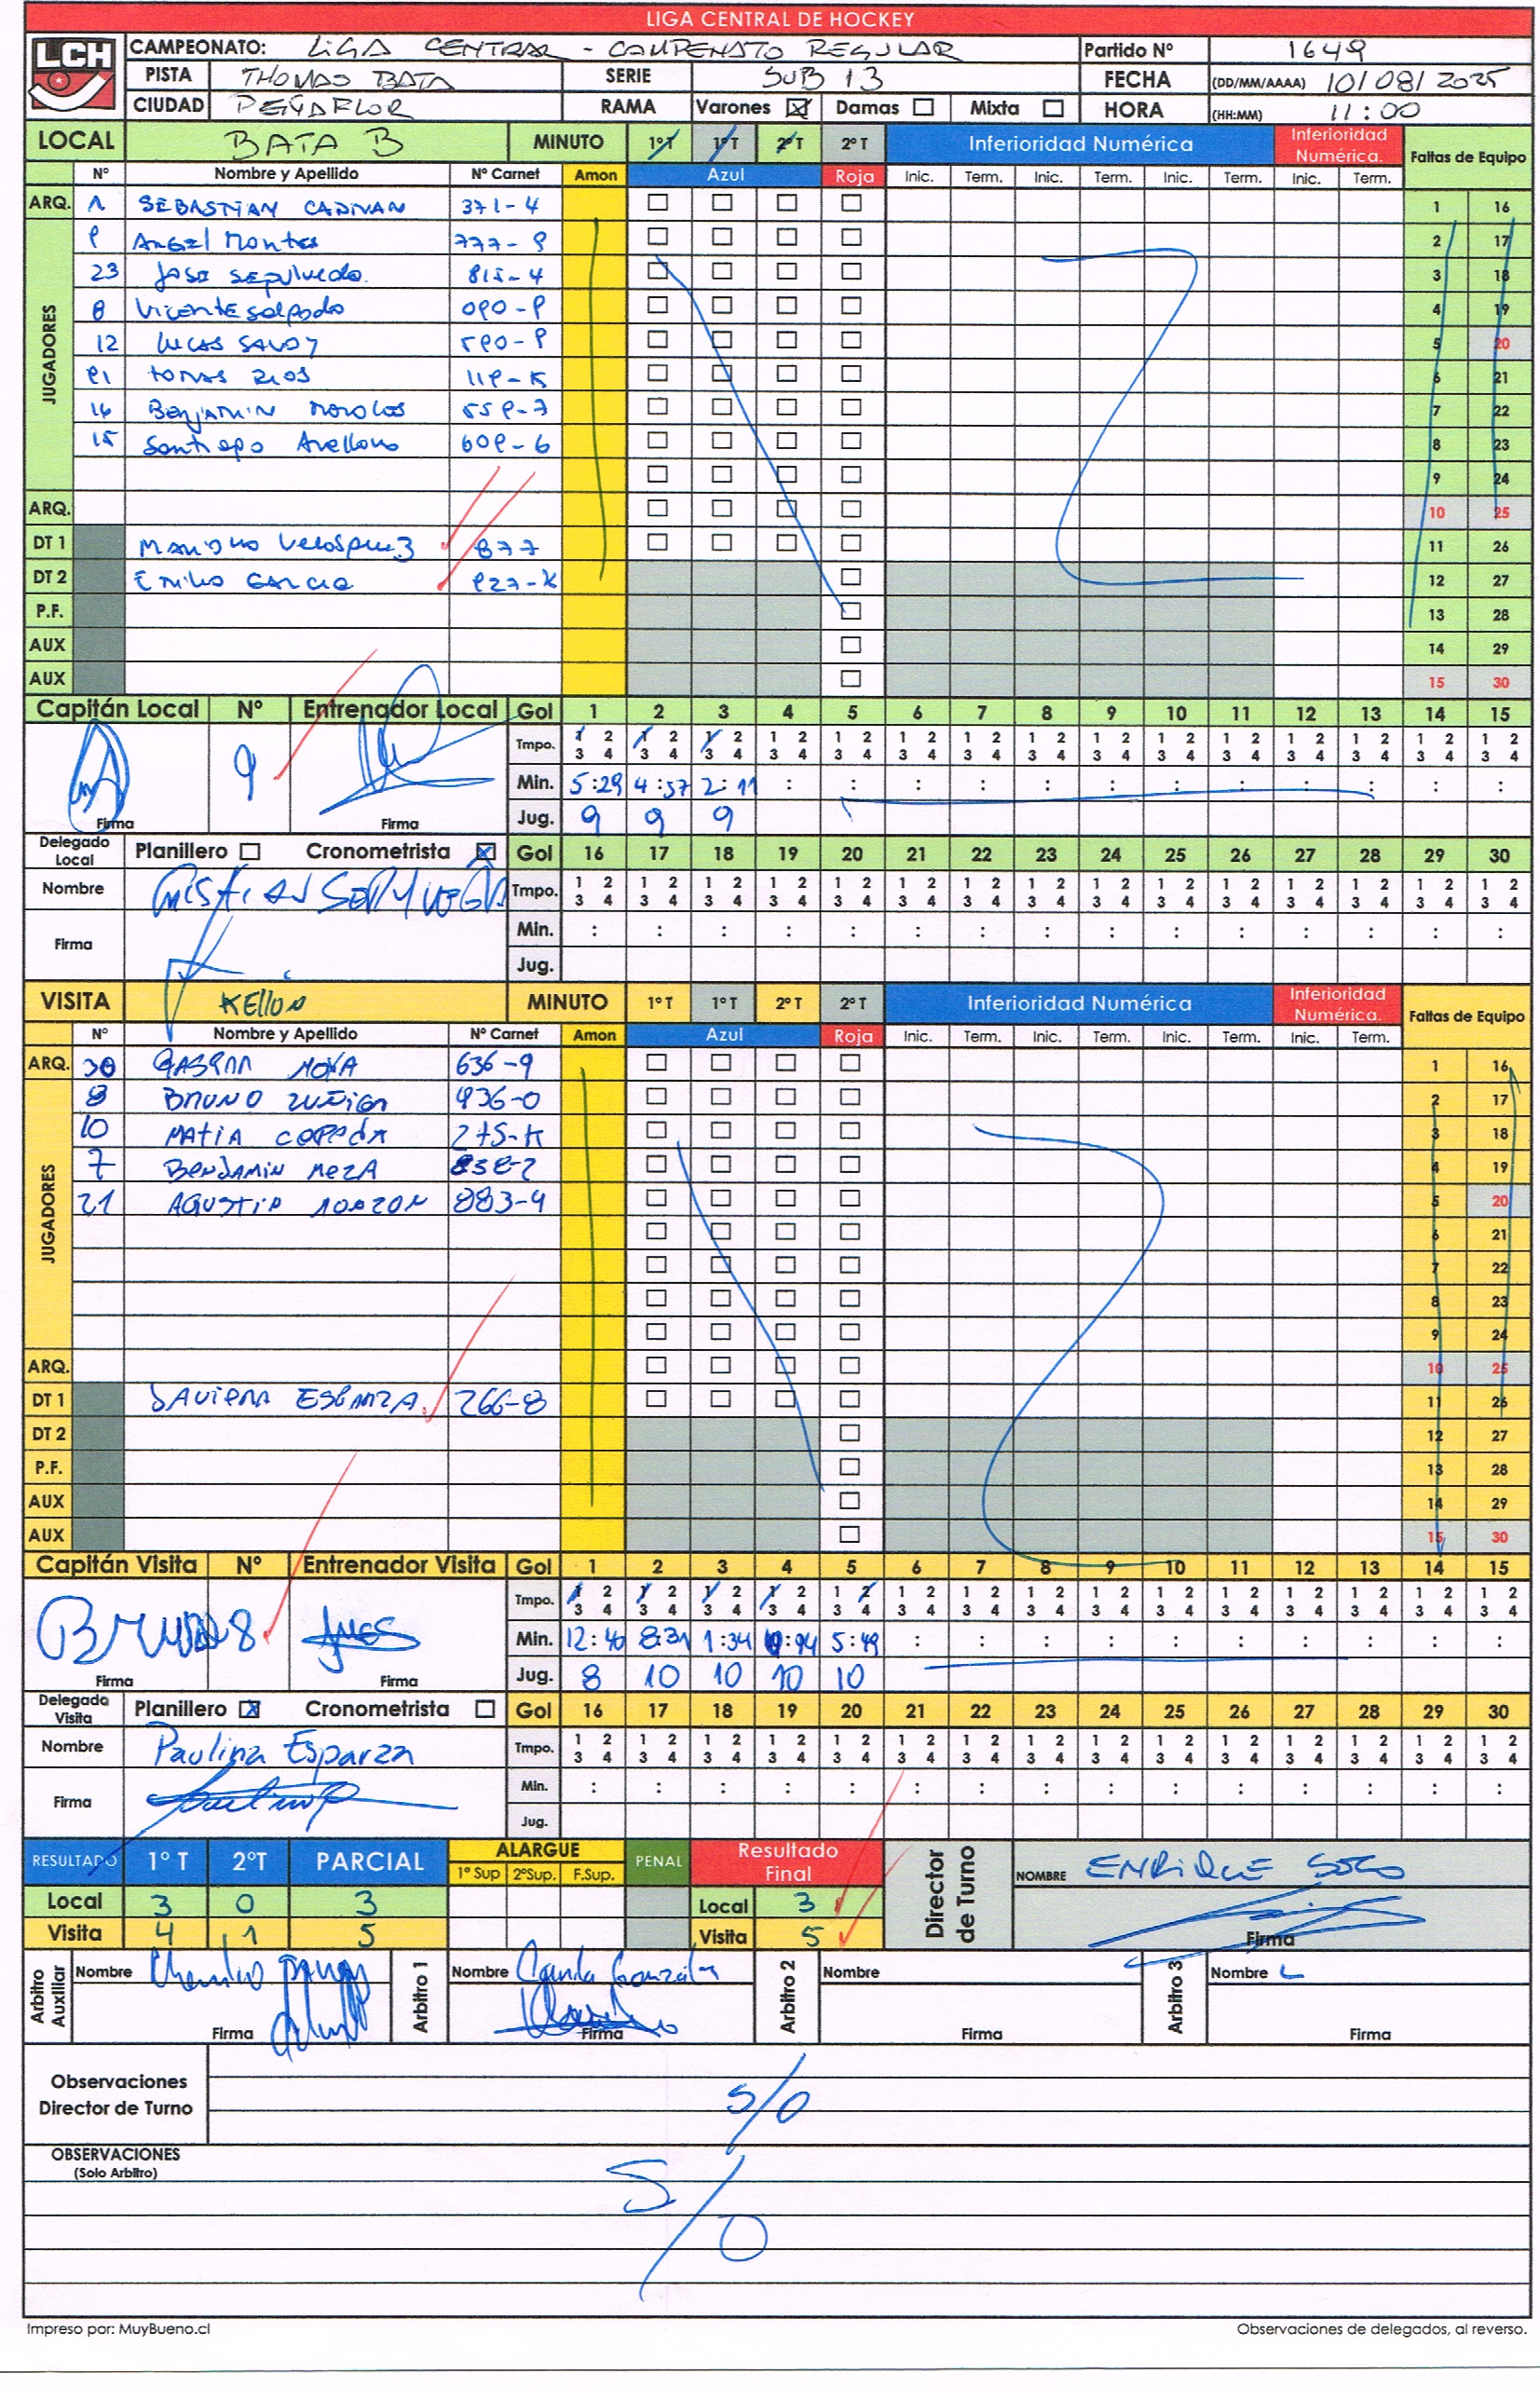 LIGA CENTRAL DE HOCKEY
LCH
CAMPEONATO: LIGA CENTRAL - COMPENATO REGULAR Partido Nº 1649
PISTA THOMAS BATA SERIE SUB 13 FECHA (DD/MM/AAAA) 10/08/2025
CIUDAD PEÑAFLOR RAMA Varones ☒ Damas ☐ Mixta ☐ HORA (HH:MM) 11:00
LOCAL BATA B MINUTO 1ºT 1ºT 2ºT 2ºT Inferioridad Numérica Inferioridad Numérica. Faltas de Equipo
Nº Nombre y Apellido Nº Carnet Amon Azul Roja Inic. Term. Inic. Term. Inic. Term. Inic. Term.
ARQ. 1 SEBASTIAN 371-4 1 16
JUGADORES
9 Angel Montes 777-9 2 17
23 Jose Sepulveda 815-4 3 18
8 Vicente Salgado 090-9 4 19
12 LUCAS SAVOY 590-9 5 20
91 TOMAS RIOS 119-K 6 21
16 Benjamin Morales 559-7 7 22
15 Santiago Arellano 609-6 8 23
9 24
ARQ. 10 25
DT 1 877 11 26
DT 2 Emilio Garcia 927-K 12 27
P.F. 13 28
AUX 14 29
AUX 15 30
Capitán Local Nº Entrenador Local Gol 1 2 3 4 5 6 7 8 9 10 11 12 13 14 15
Tmpo. 1 2 3 4 1 2 3 4 1 2 3 4 1 2 3 4 1 2 3 4 1 2 3 4 1 2 3 4 1 2 3 4 1 2 3 4 1 2 3 4 1 2 3 4 1 2 3 4 1 2 3 4 1 2 3 4 1 2 3 4
9 Min. 5:29 4:57 2:11 : : : : : : : : : : : :
Firma Firma Jug. 9 9 9
Delegado Local Planillero ☐ Cronometrista ☒ Gol 16 17 18 19 20 21 22 23 24 25 26 27 28 29 30
Nombre Tmpo. 1 2 3 4 1 2 3 4 1 2 3 4 1 2 3 4 1 2 3 4 1 2 3 4 1 2 3 4 1 2 3 4 1 2 3 4 1 2 3 4 1 2 3 4 1 2 3 4 1 2 3 4 1 2 3 4 1 2 3 4
Firma Min. : : : : : : : : : : : : : : :
Jug.
VISITA KELLUN MINUTO 1ºT 1ºT 2ºT 2ºT Inferioridad Numérica Inferioridad Numérica. Faltas de Equipo
Nº Nombre y Apellido Nº Carnet Amon Azul Roja Inic. Term. Inic. Term. Inic. Term. Inic. Term.
ARQ. MOYA 636-9 1 16
JUGADORES
8 BRUNO ZUÑIGA 936-0 2 17
10 MATIA CEPEDA 275-K 3 18
7 BENJAMIN MEZA 858-2 4 19
21 AGUSTIN 883-4 5 20
6 21
7 22
8 23
9 24
ARQ. 10 25
DT 1 JAVIERA ESPARZA 266-8 11 26
DT 2 12 27
P.F. 13 28
AUX 14 29
AUX 15 30
Capitán Visita Nº Entrenador Visita Gol 1 2 3 4 5 6 7 8 9 10 11 12 13 14 15
Tmpo. 1 2 3 4 1 2 3 4 1 2 3 4 1 2 3 4 1 2 3 4 1 2 3 4 1 2 3 4 1 2 3 4 1 2 3 4 1 2 3 4 1 2 3 4 1 2 3 4 1 2 3 4 1 2 3 4 1 2 3 4
8 Min. 12:40 8:31 1:34 5:49 : : : : : : : : : :
Firma Firma Jug. 8 10 10 10 10
Delegado Visita Planillero ☒ Cronometrista ☐ Gol 16 17 18 19 20 21 22 23 24 25 26 27 28 29 30
Nombre Paulina Esparza Tmpo. 1 2 3 4 1 2 3 4 1 2 3 4 1 2 3 4 1 2 3 4 1 2 3 4 1 2 3 4 1 2 3 4 1 2 3 4 1 2 3 4 1 2 3 4 1 2 3 4 1 2 3 4 1 2 3 4 1 2 3 4
Firma Min. : : : : : : : : : : : : : : :
Jug.
RESULTADO 1º T 2ºT PARCIAL ALARGUE 1º Sup 2ºSup. F.Sup. PENAL Resultado Final Director de Turno NOMBRE ENRIQUE SOTO
Local 3 0 3 Local 3
Visita 4 1 5 Visita 5 Firma
Arbitro Auxiliar Nombre Arbitro 1 Nombre Camila González Arbitro 2 Nombre Arbitro 3 Nombre
Firma Firma Firma Firma
Observaciones Director de Turno S/O
OBSERVACIONES (Solo Arbitro) S/O
Impreso por: MuyBueno.cl Observaciones de delegados, al reverso.